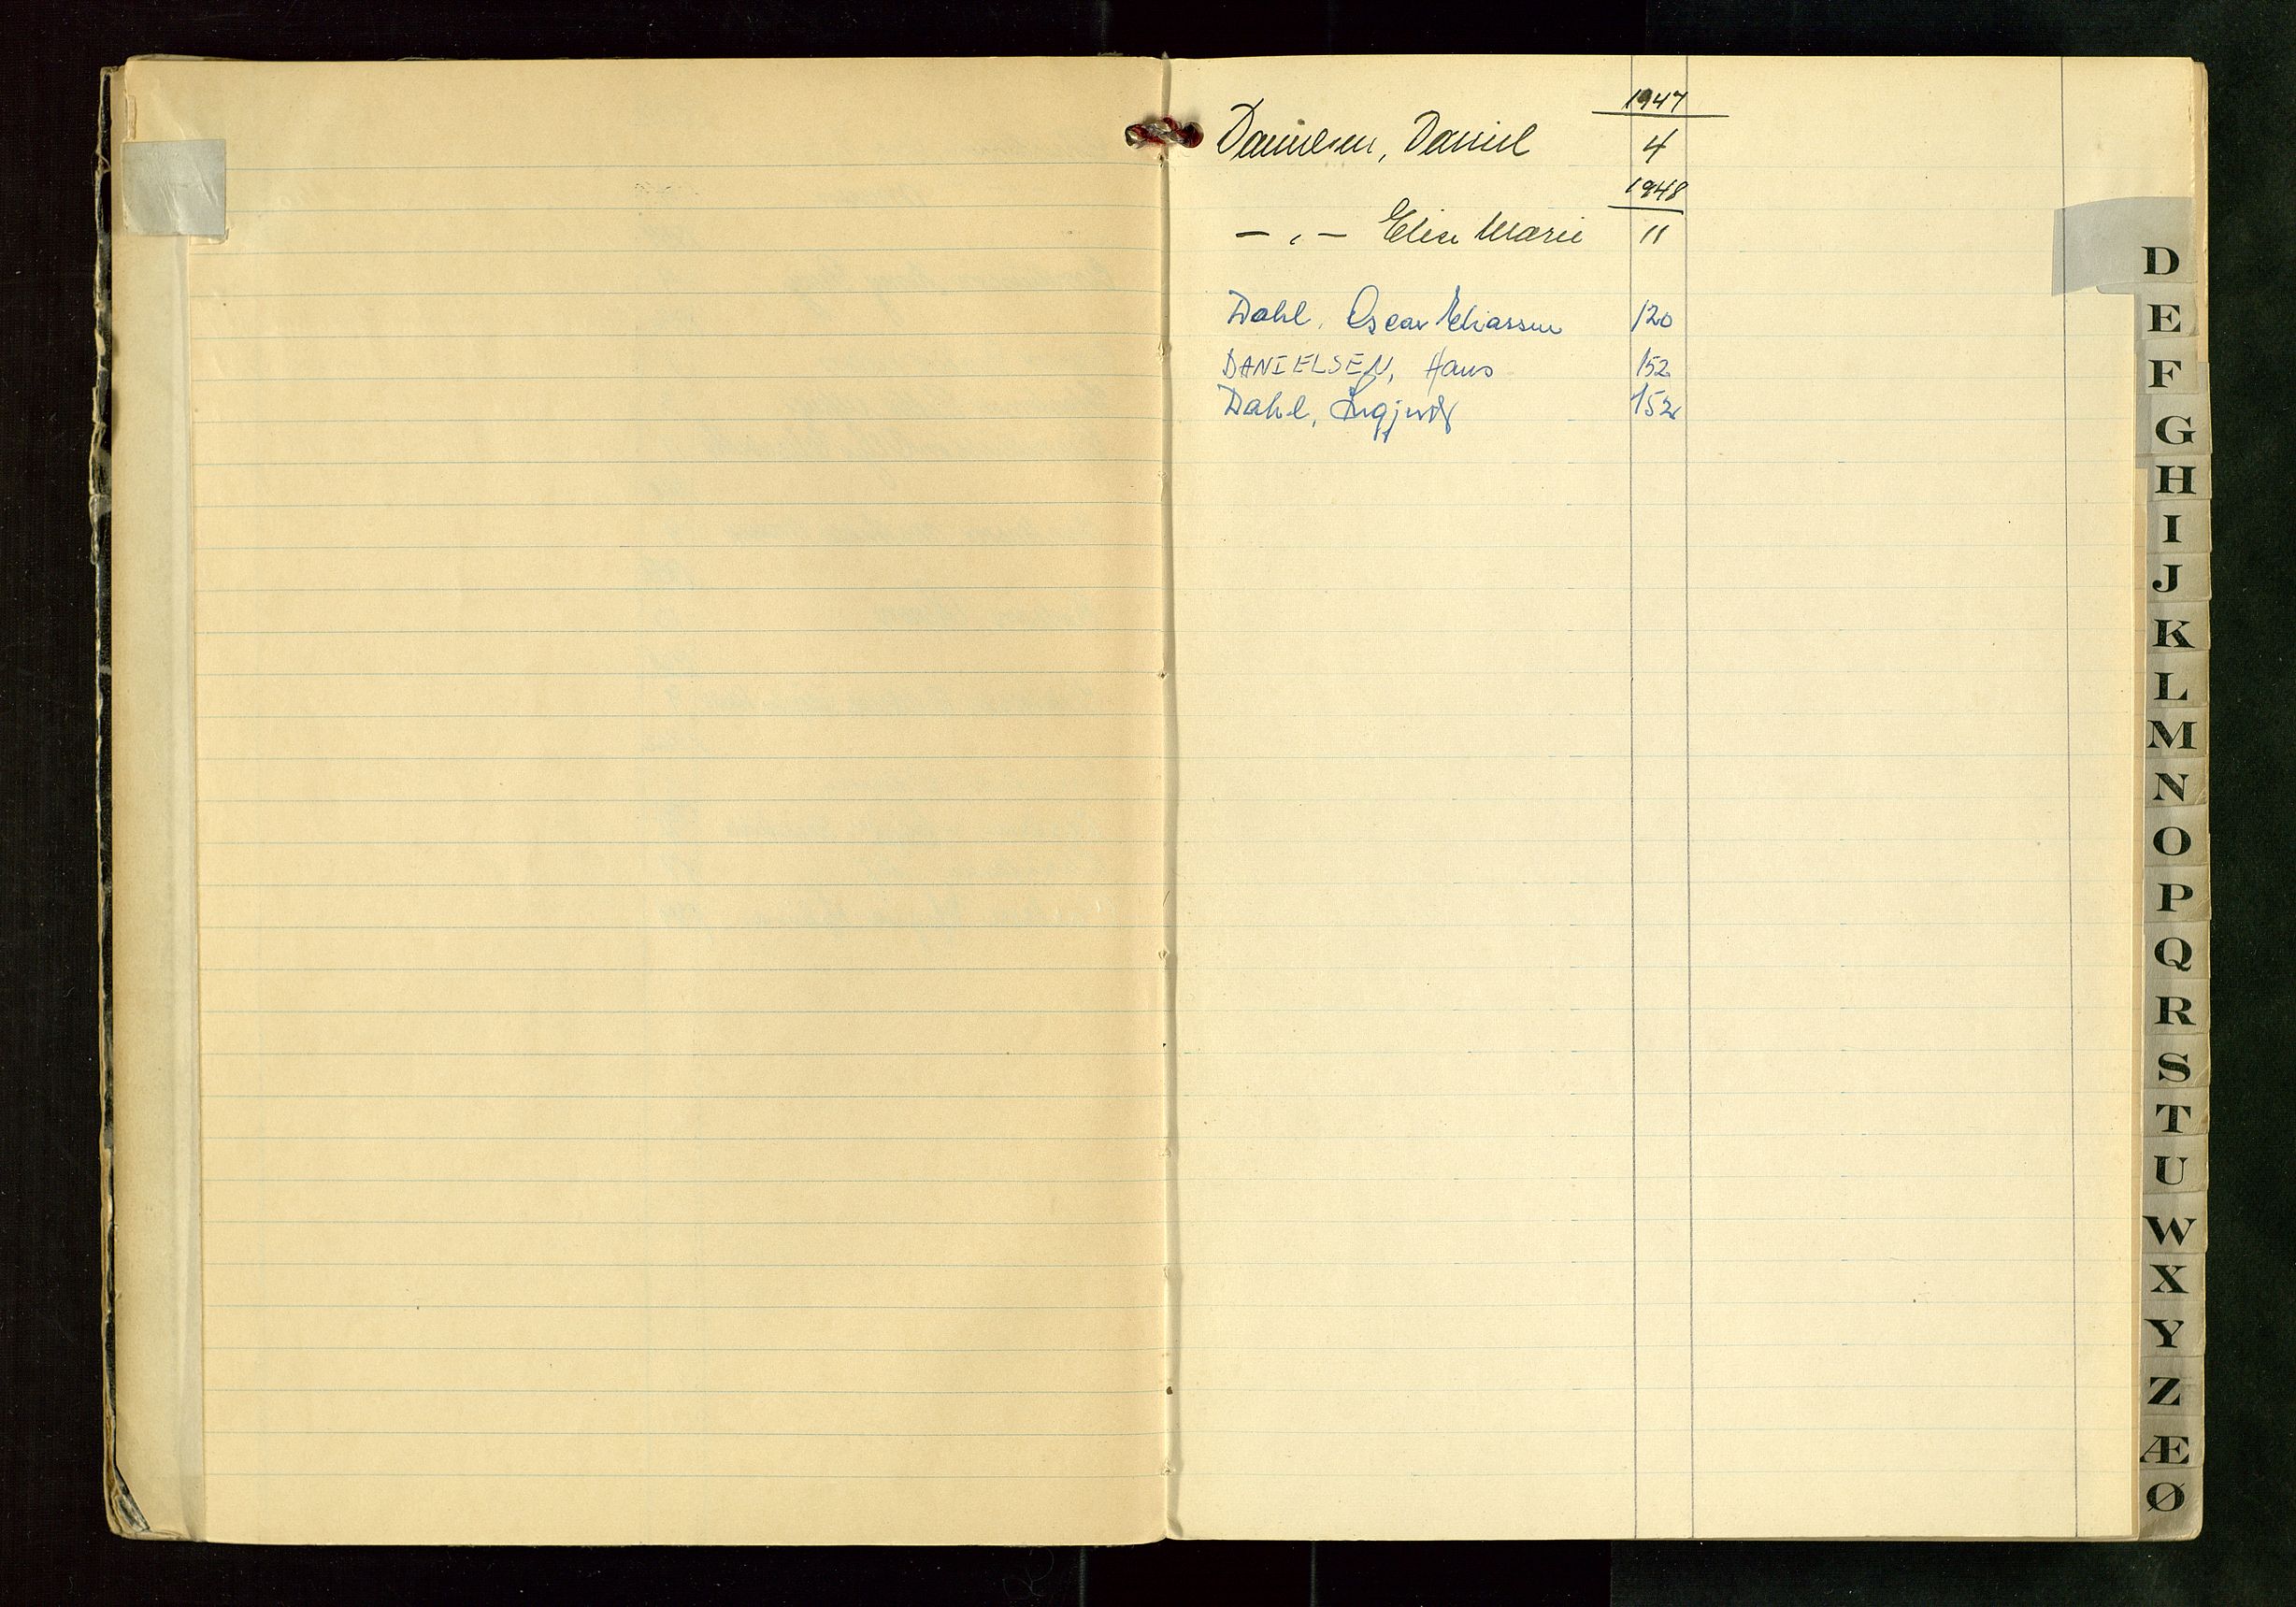 1947
Danielsen, Daniel 4
1948
— „ — Elise Marie 11
Dahl, Oscar Eliassen 120
DANIELSEN, Hans 152
Dahl, 152
D
E
F
G
H
I
J
K
L
M
N
O
P
Q
R
S
T
U
W
X
Y
Z
Æ
Ø